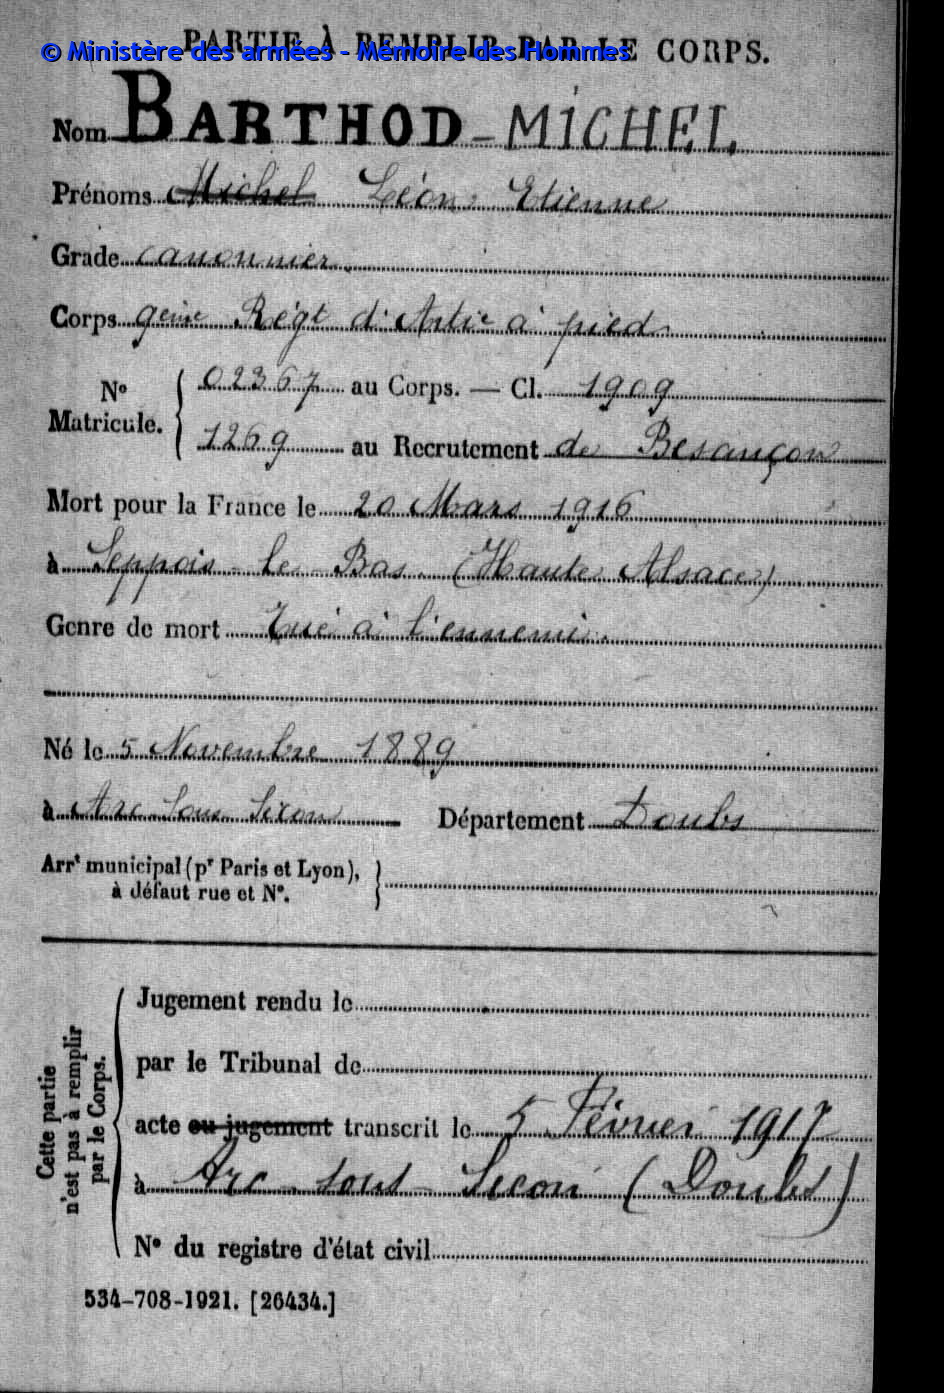 PARTIE À REMPLIR PAR LE CORPS.
© Ministère des armées - Mémoire des Hommes
Nom BARTHOD-MICHEL
Prénoms Michel Léon Etienne
Grade canonnier
Corps 9eme Régt d'Artie à pied
No Matricule. 02367 au Corps. — Cl. 1909
1269 au Recrutement de Besançon
Mort pour la France le 20 Mars 1916
à Seppois-le-Bas (Haute Alsace)
Genre de mort Tué à l'ennemi.
Né le 5 Novembre 1889
à Arc Sous Sicon Département Doubs
Arrt municipal (pr Paris et Lyon),
à défaut rue et No.
Cette partie
n'est pas à remplir
par le Corps.
Jugement rendu le
par le Tribunal de
acte ou jugement transcrit le 5 Février 1917
à Arc-sous-Sicon (Doubs)
No du registre d'état civil
534-708-1921. [26434.]